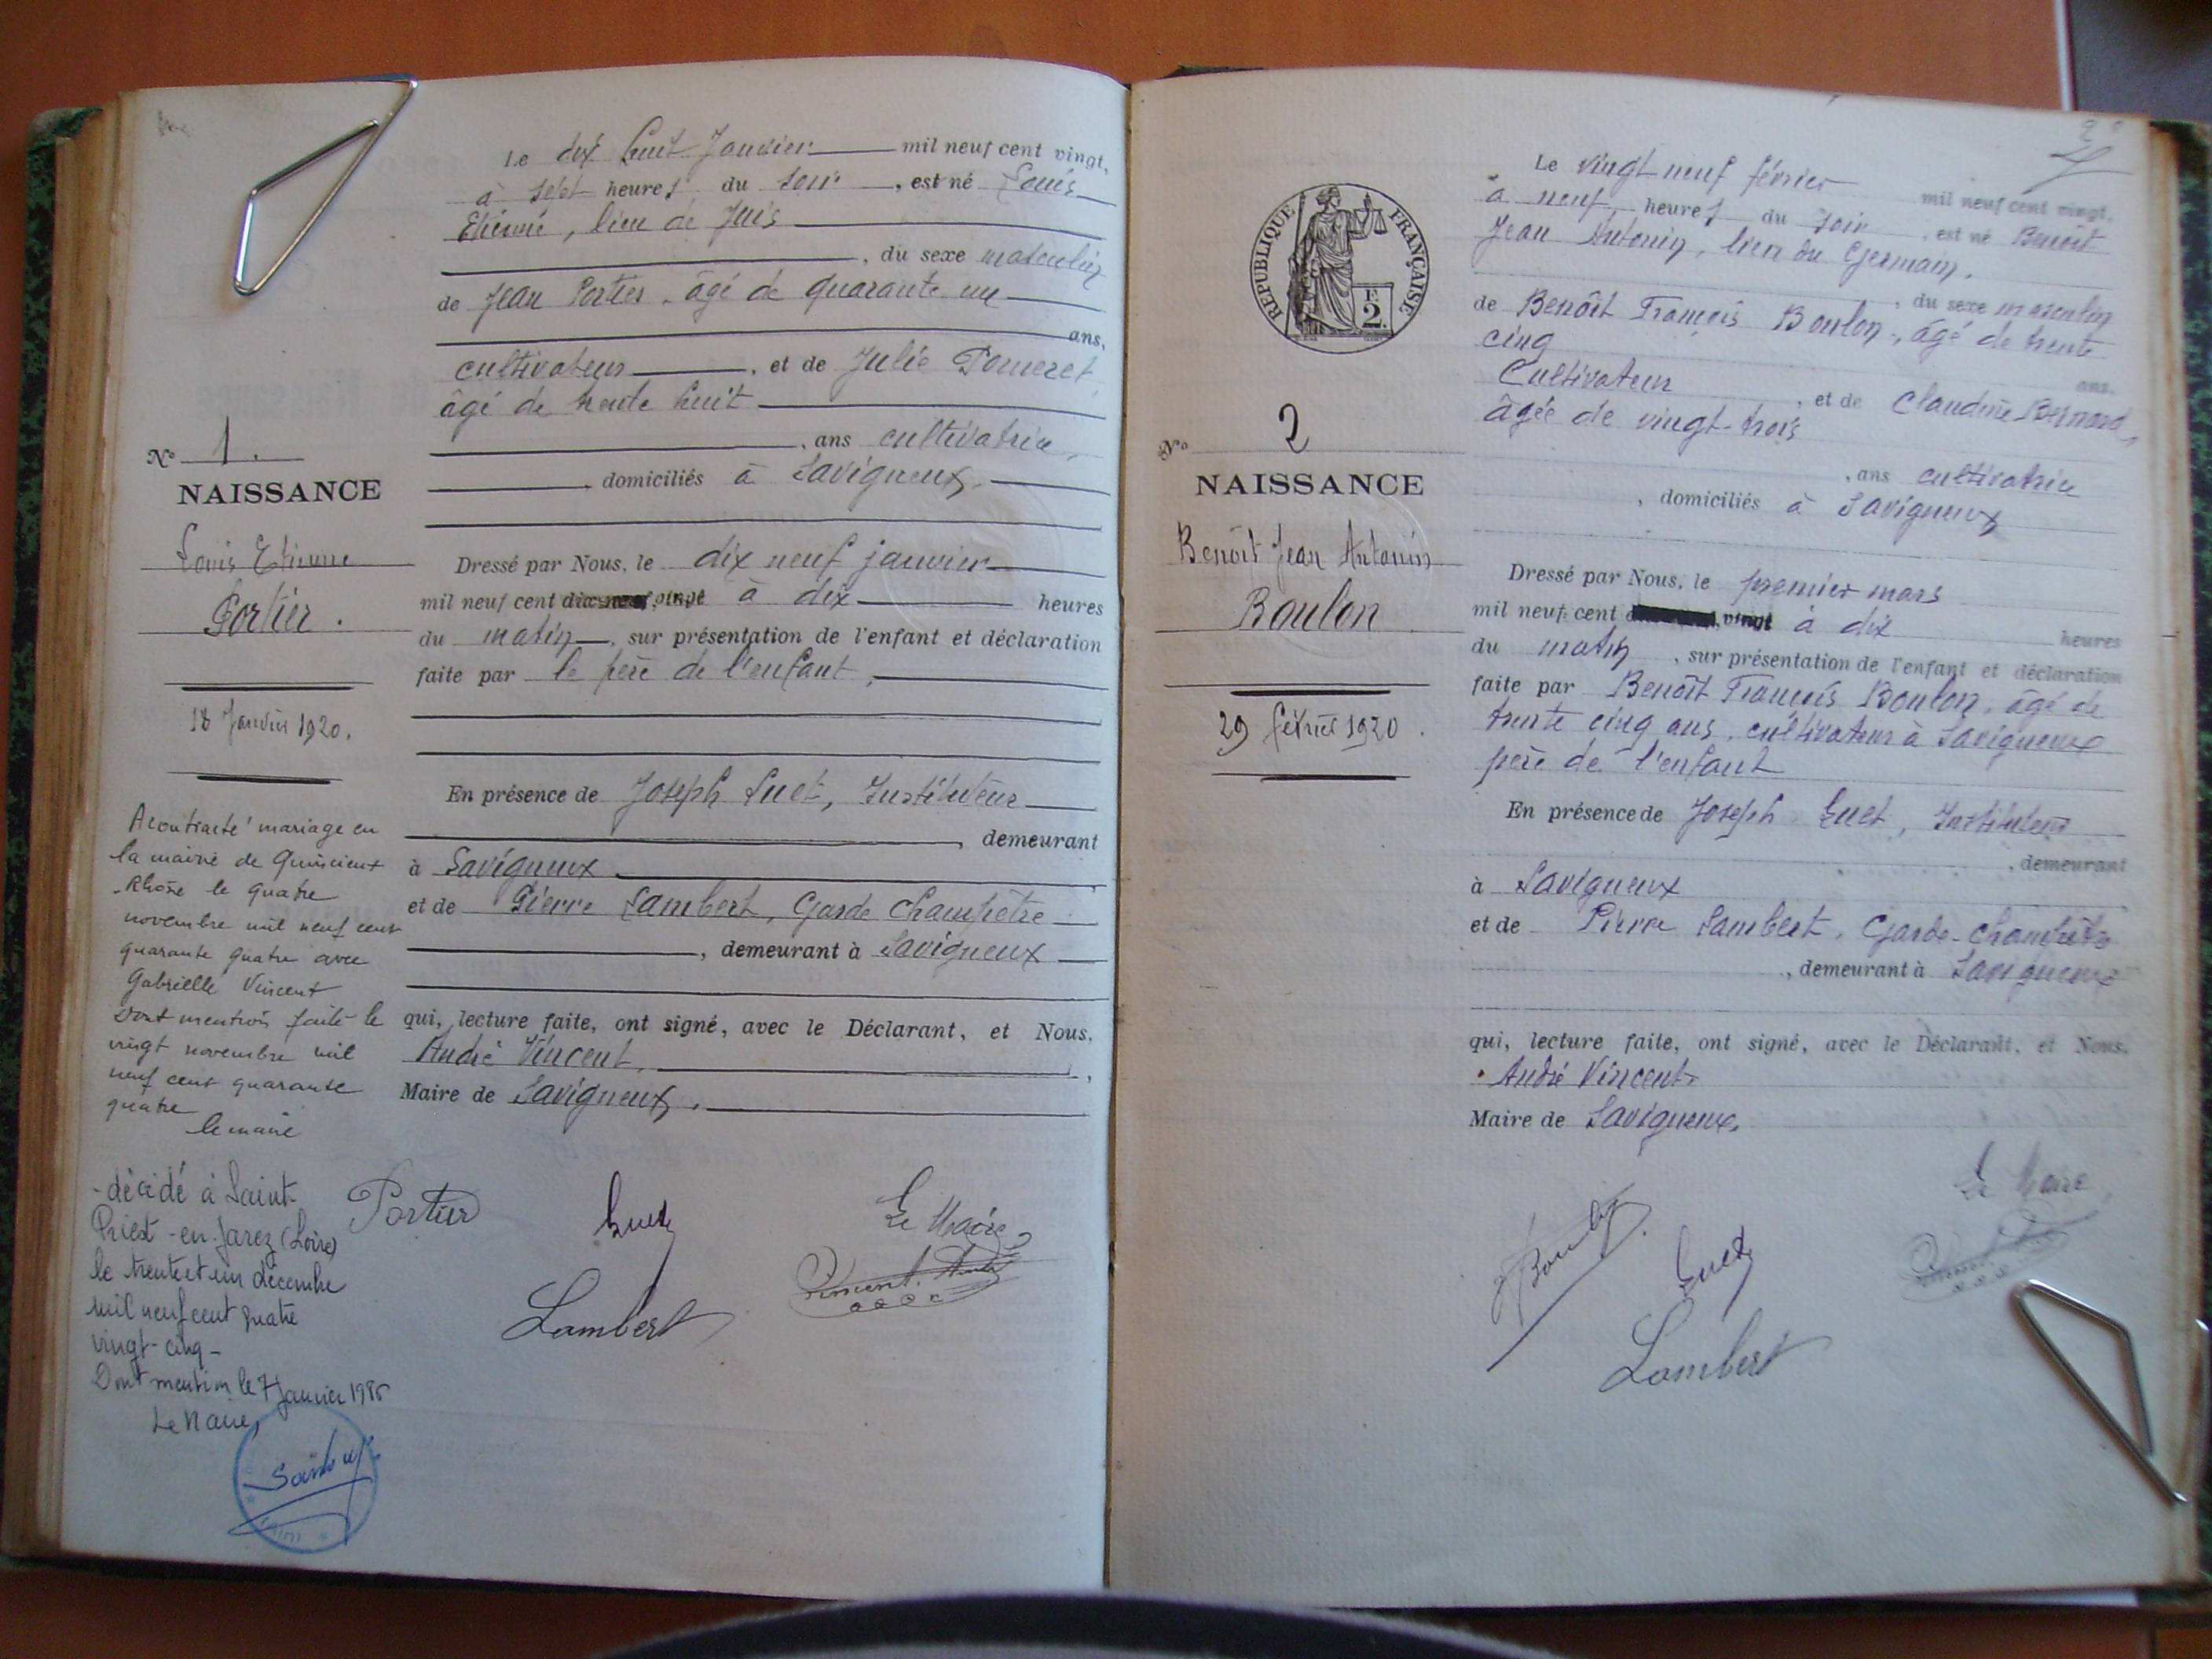 Le dix huit Janvier mil neuf cent vingt,
à sept heures du soir, est né Louis
Etienne, lieu de Juis
, du sexe masculin
de Jean Portier, âgé de quarante un
ans,
cultivateur, et de Julie Pomeret
âgé de trente huit
, ans cultivatrice,
domiciliés à Savigneux,
Dressé par Nous, le dix neuf janvier
mil neuf cent vingt à dix heures
du matin, sur présentation de l'enfant et déclaration
faite par le père de l'enfant,
En présence de Joseph Guet, Instituteur
, demeurant
à Savigneux
et de Pierre Lambert, Garde Champêtre
, demeurant à Savigneux
qui, lecture faite, ont signé, avec le Déclarant, et Nous,
André Vincent,
Maire de Savigneux,
No 1.
NAISSANCE
Louis Etienne
Portier.
18 Janvier 1920.
A contracté mariage en
la mairie de Quincieux
Rhône le quatre
novembre mil neuf cent
quarante quatre avec
Gabrielle Vincent
Dont mention faite le
vingt novembre mil
neuf cent quarante
quatre
le maire
- décédé à Saint-
Priest-en-Jarez (Loire)
le trente et un décembre
mil neuf cent quatre
vingt-cinq-
Dont mention le 7 Janvier 1986
Le Maire,
Portier
Guet
Le Maire
Vincent André
Lambert
Le vingt neuf février mil neuf cent vingt,
à neuf heures du soir, est né Benoît
Jean Antonin, lieu du Germain,
, du sexe masculin
de Benoît François Boulon, âgé de trente
cinq
ans.
Cultivateur, et de Claudine Bernard,
âgée de vingt-trois
, ans cultivatrice
, domiciliés à Savigneux
Dressé par Nous, le premier mars
mil neuf cent vingt à dix heures
du matin, sur présentation de l'enfant et déclaration
faite par Benoît François Boulon, âgé de
trente cinq ans, cultivateur à Savigneux
père de l'enfant
En présence de Joseph Guet, Instituteur
, demeurant
à Savigneux
et de Pierre Lambert, Garde-champêtre
, demeurant à Savigneux
qui, lecture faite, ont signé, avec le Déclarant, et Nous,
André Vincent,
Maire de Savigneux,
RÉPUBLIQUE FRANÇAISE
F.
2.
No 2
NAISSANCE
Benoît Jean Antonin
Boulon
29 février 1920.
Boulon
Guet
Le Maire
Lambert